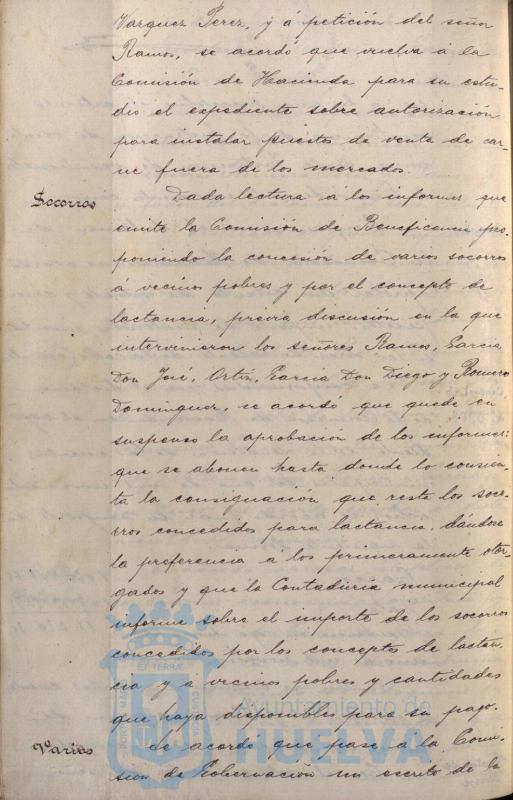 Vazquez Perez, y á petición del señor
Ramos, se acordó que vuelva á la
Comisión de Hacienda para su estu-
dio el expediente sobre autorización
para instalar puestos de venta de car-
ne fuera de los mercados.
Socorros
Dada lectura á los informes que
emite la Comisión de Beneficencia pro-
poniendo la concesión de varios socorros
á vecinos pobres y por el concepto de
lactancia, previa discusión en la que
intervinieron los señores Ramos, Garcia
Don José, Ortiz, Garcia Don Diego y Romero
Dominguez, se acordó que quede en
suspenso la aprobación de los informes:
que se abonen hasta donde lo consien-
ta la consignación que reste los soco-
rros concedidos para lactancia, dándose
la preferencia a los primeramente otor-
gados y que la Contaduría municipal
informe sobre el importe de los socorros
concedidos por los conceptos de lactan-
cia y a vecinos pobres y cantidades
que haya disponibles para su pago.
Varios
Se acordó que pase á la Comi-
sion de Gobernación un escrito de la
Ayuntamiento de
HUELVA